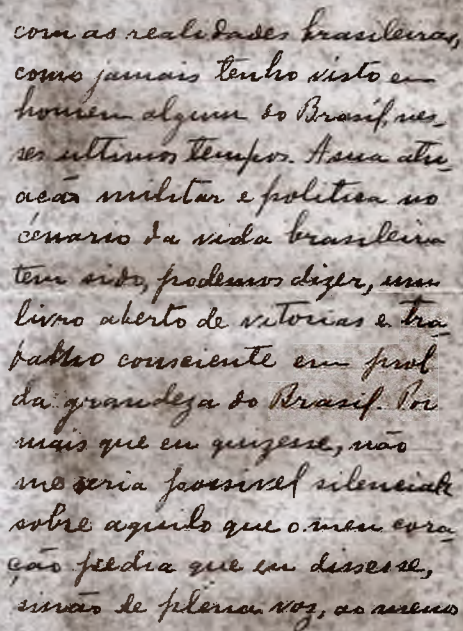 com as realidades brasileiras,
como jamais tenho visto em
homem algum do Brasil, nes-
ses ultimos tempos. A sua atu-
ação militar e politica no
cenario da vida brasileira
tem sido, podemos dizer, um
livro aberto de vitorias e tra-
balho consciente em prol
da grandeza do Brasil. Por
mais que eu quizesse, não
me seria possivel silenciar
sobre aquilo que o meu cora-
ção pedia que eu dissesse,
sinão de plena voz, ao menos